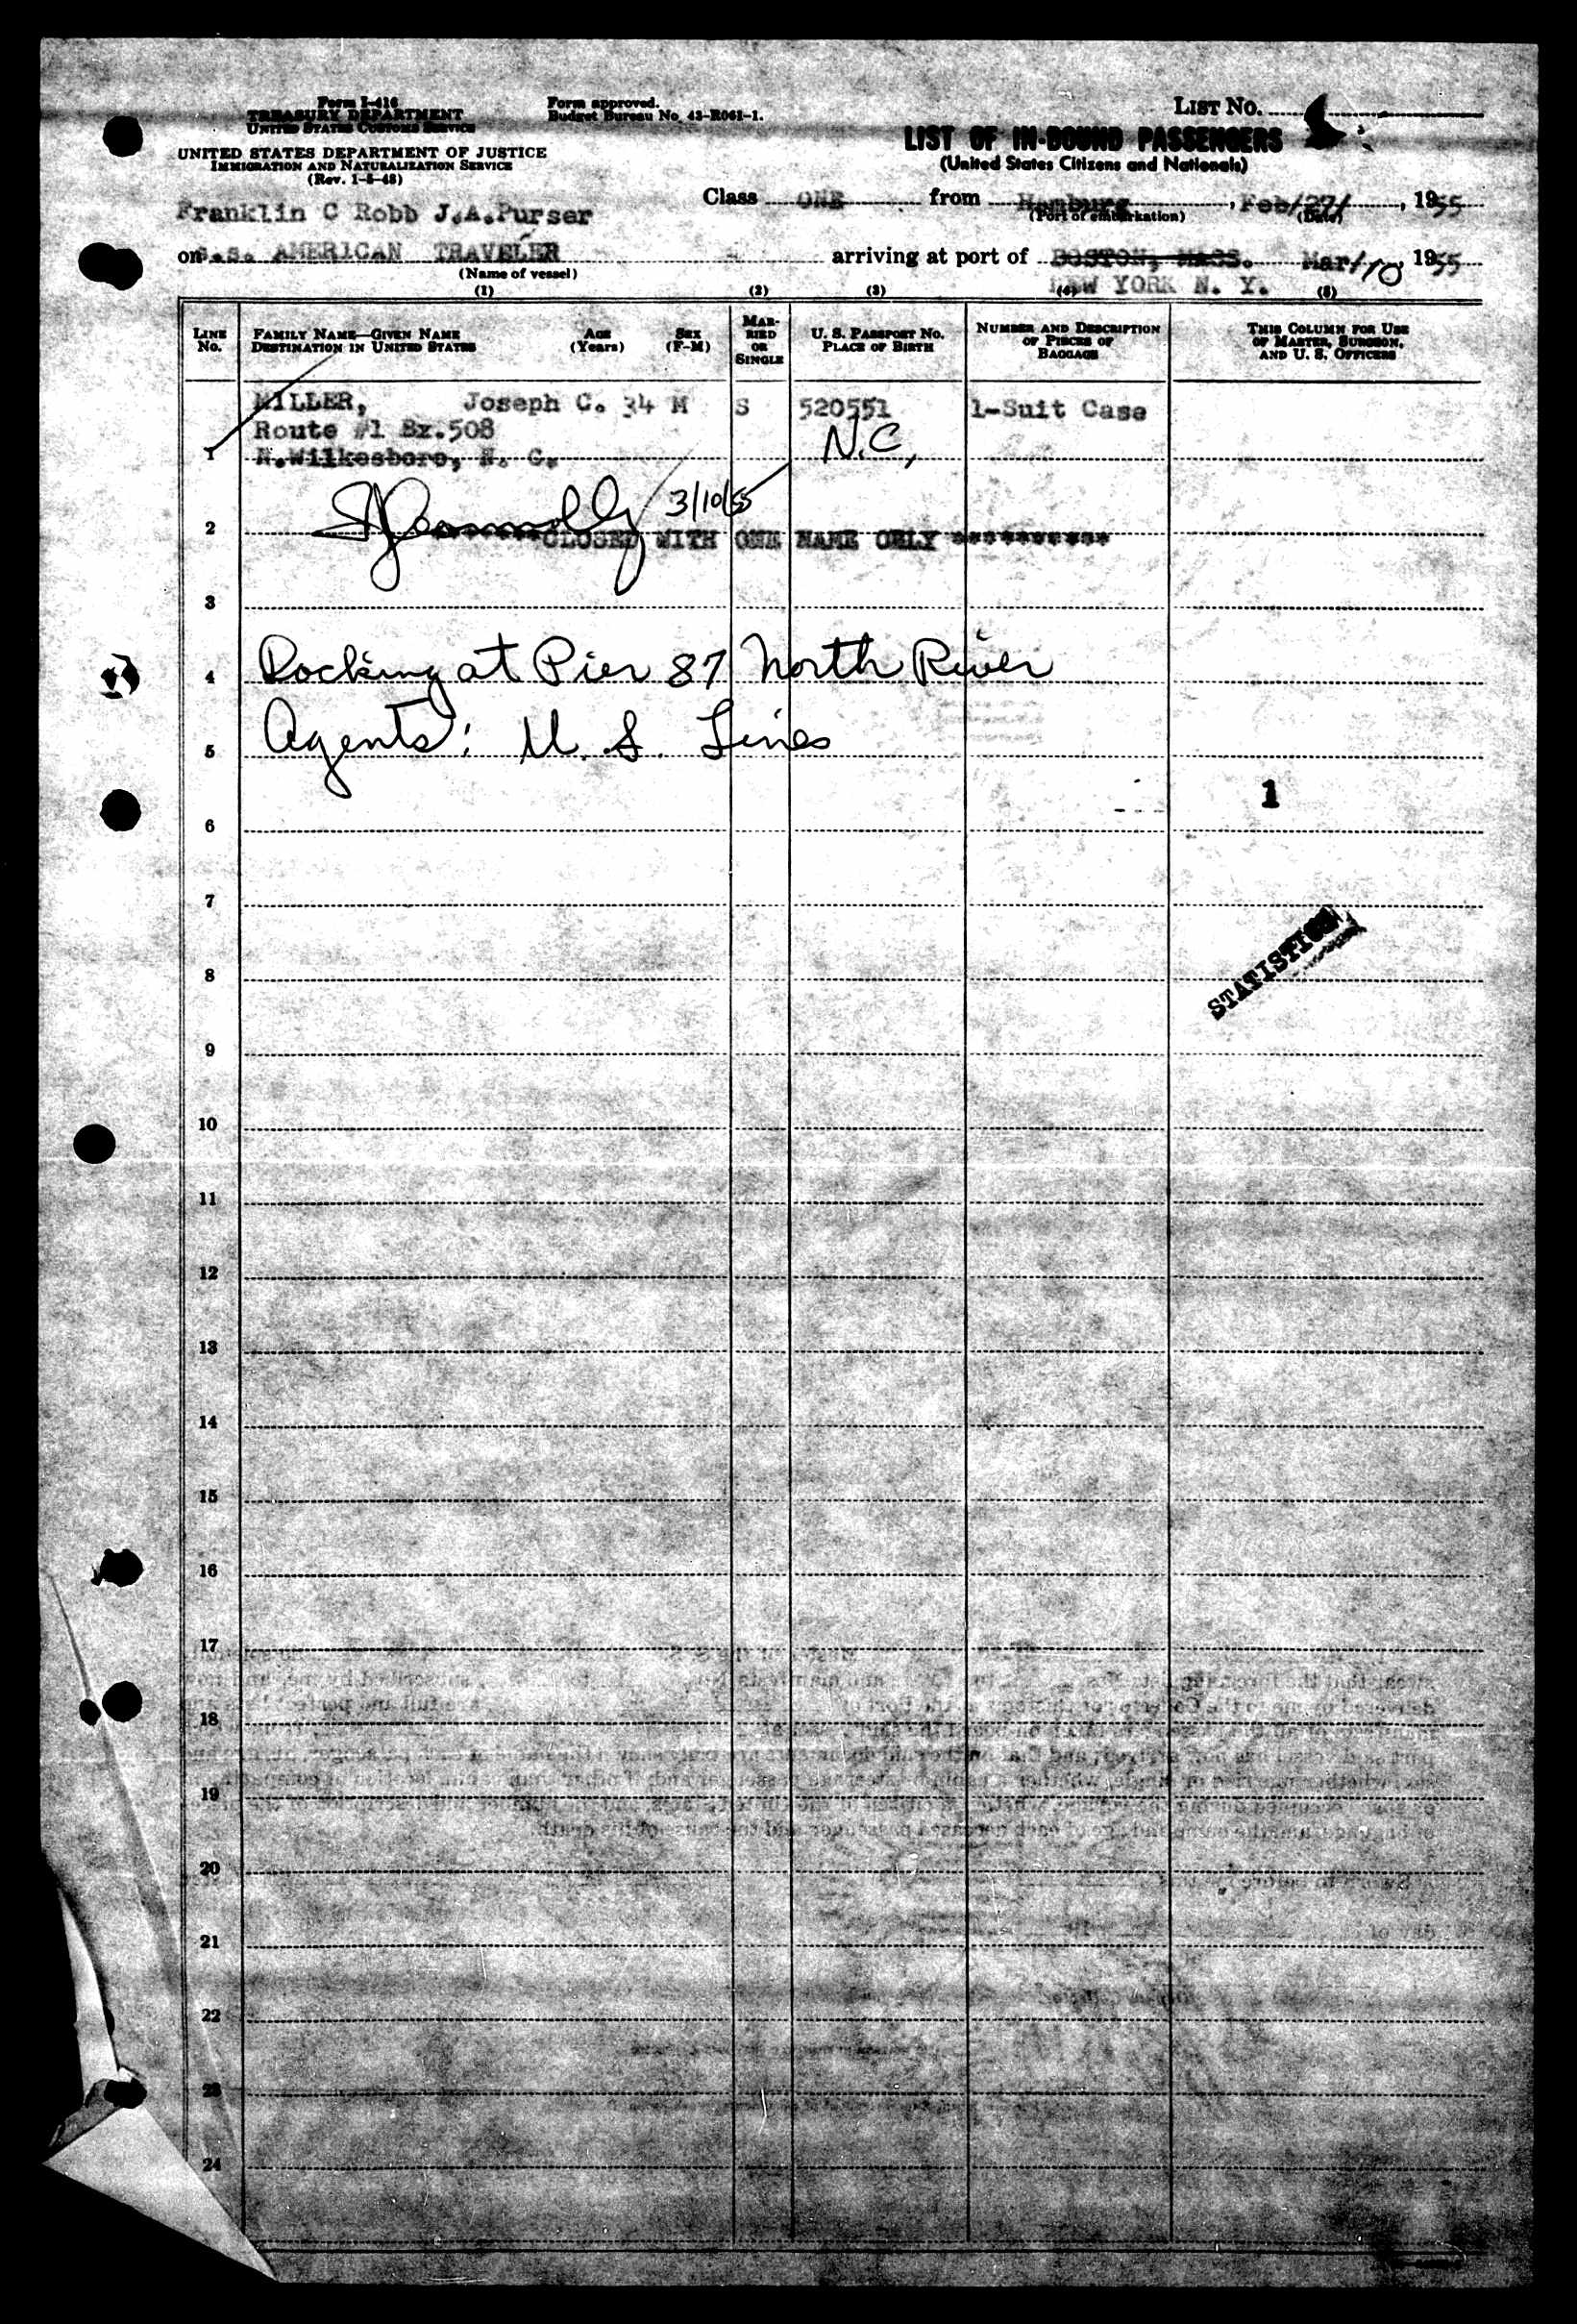 Form I-416
TREASURY DEPARTMENT
UNITED STATES CUSTOMS SERVICE
Form approved.
Budget Bureau No. 43-R061-1.
LIST NO.
UNITED STATES DEPARTMENT OF JUSTICE
IMMIGRATION AND NATURALIZATION SERVICE
(Rev. 1-5-48)
LIST OF IN-BOUND PASSENGERS
(United States Citizens and Nationals)
Franklin C Robb J.A.Purser
Class ONE from Hamburg, Feb/27/, 1955
(Port of embarkation) (Date)
on s.s. AMERICAN TRAVELER arriving at port of BOSTON, MASS. Mar/10, 1955
(Name of vessel)
NEW YORK N. Y.
(1) (2) (3) (4) (5)
LINE No.
FAMILY NAME—GIVEN NAME AGE (Years) SEX (F-M)
DESTINATION IN UNITED STATES
MARRIED OR SINGLE
U. S. PASSPORT NO.
PLACE OF BIRTH
NUMBER AND DESCRIPTION OF PIECES OF BAGGAGE
THIS COLUMN FOR USE OF MASTER, SURGEON, AND U. S. OFFICERS
MILLER, Joseph C. 34 M S 520551 1-Suit Case
Route #1 Bx.508
1 N.Wilkesboro, N. C. N.C.
3/10/55
2 CLOSED WITH ONE NAME ONLY **********
3
4 Docking at Pier 87 North River
5 Agents: U. S. Lines
1
6
7
STATISTICS
8
9
10
11
12
13
14
15
16
17
18
19
20
21
22
23
24